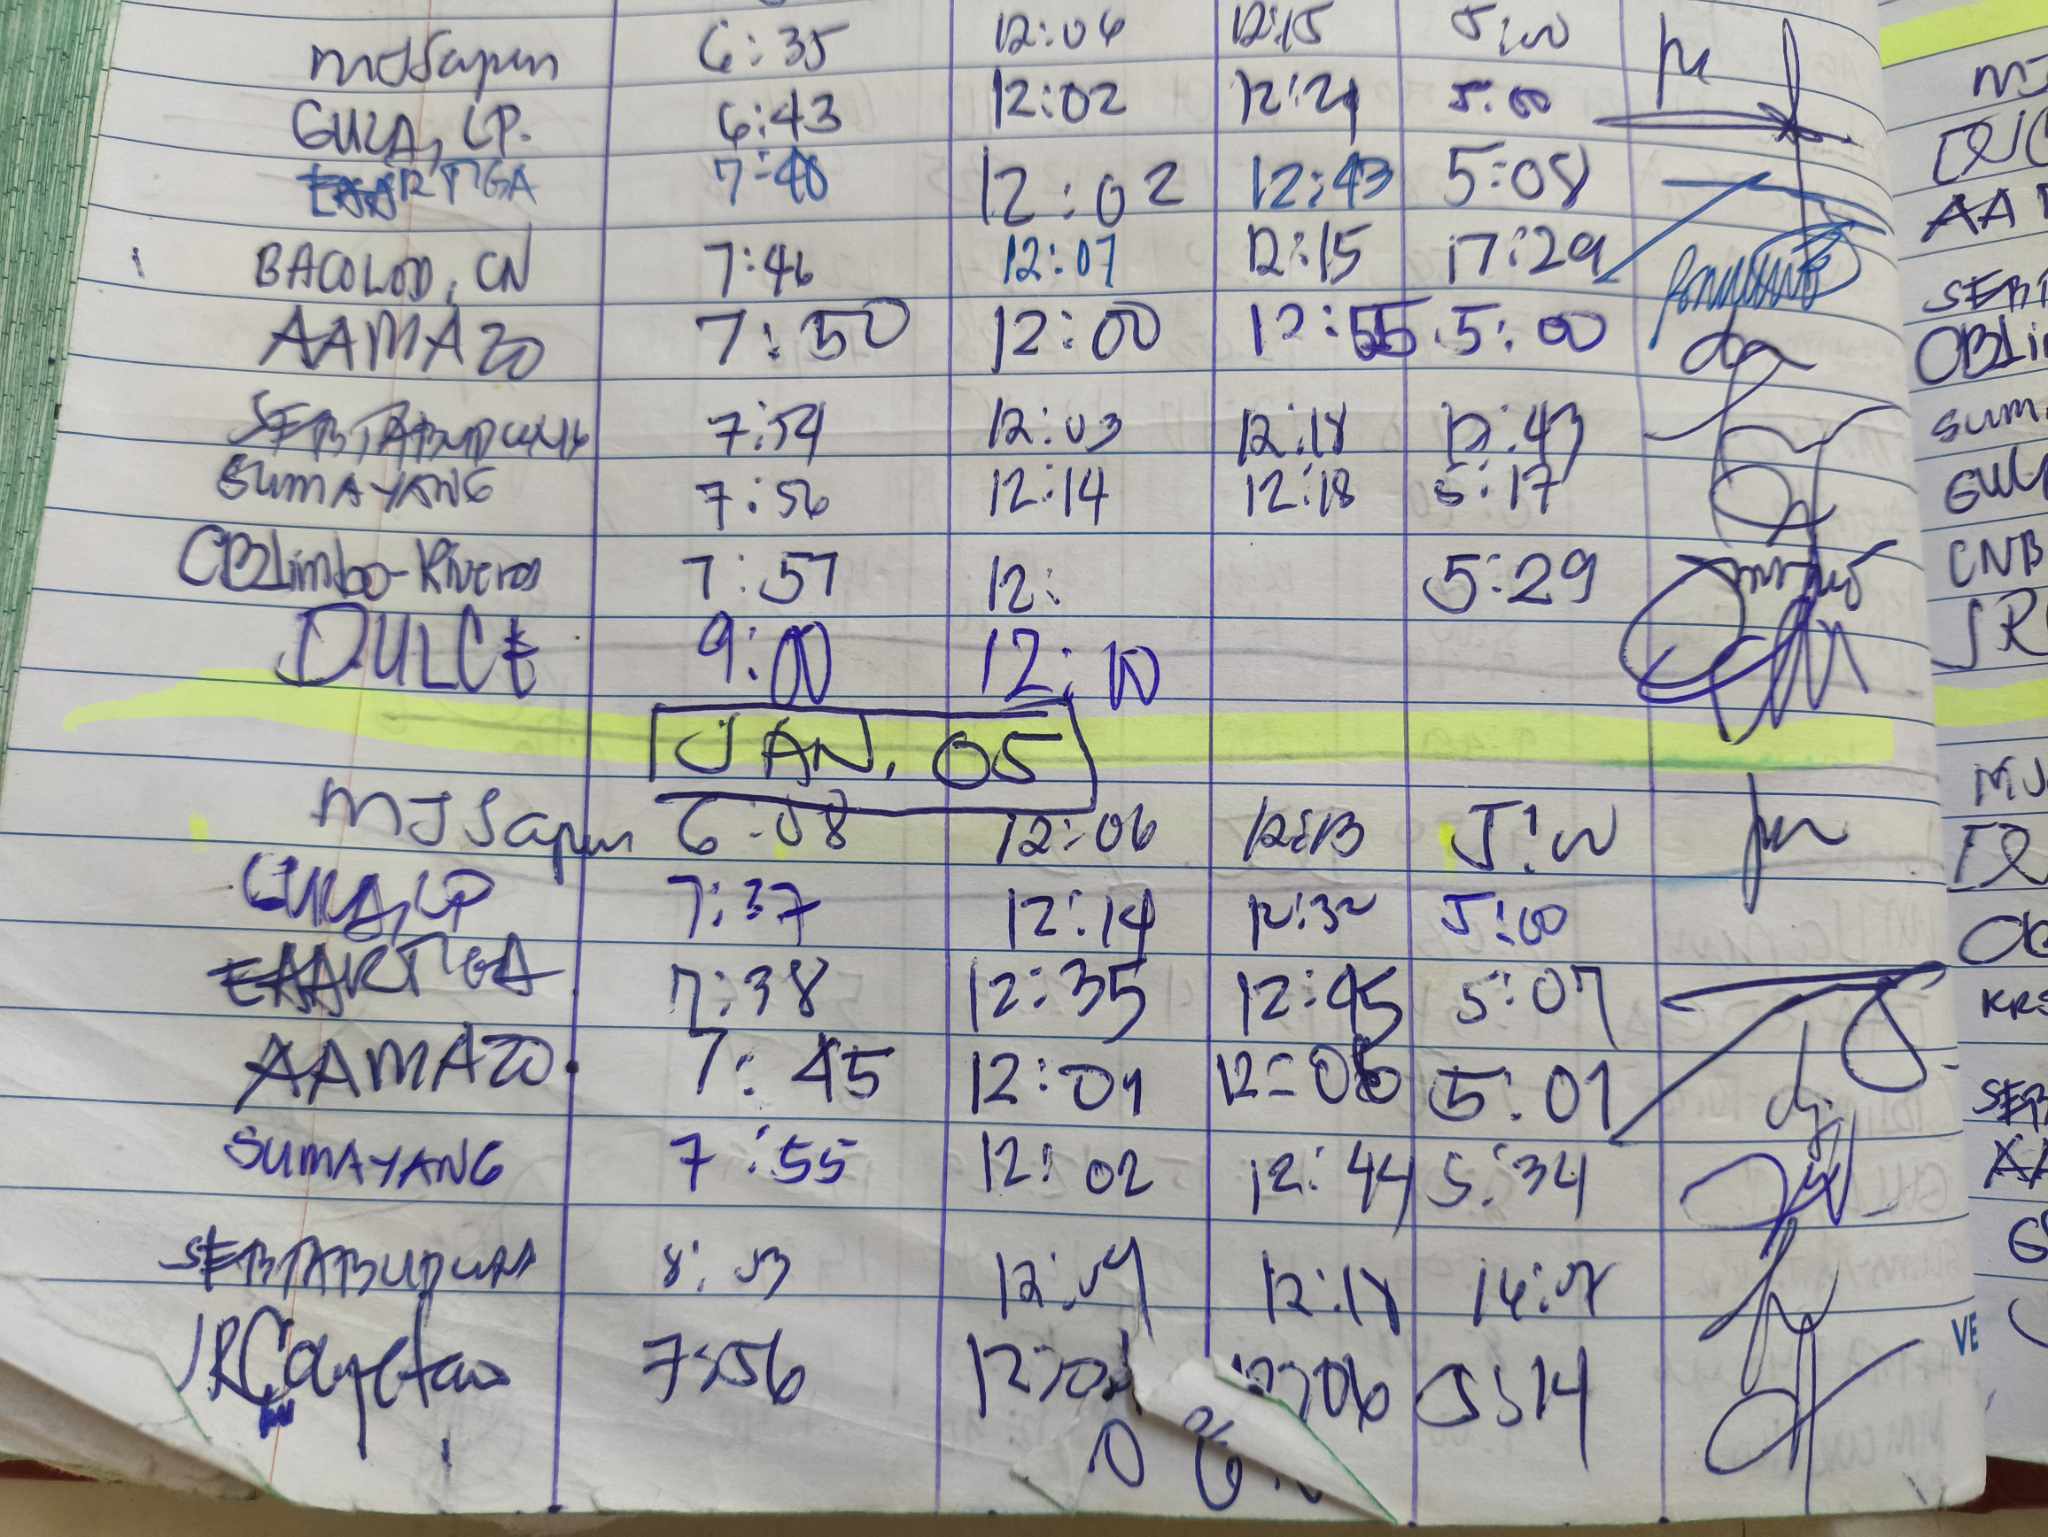 MJSapun 6:35 12:04 12:15 5:00
GULA, LP. 6:43 12:02 12:21 5:00
EAARTIGA 7:40 12:02 12:43 5:08
BACOLOD, CN 7:46 12:07 12:15 17:29
AAMAZO 7:50 12:00 12:55 5:00
7:54 12:03 12:18 12:43
SUMAYANG 7:56 12:14 12:18 5:17
CBLimbo-Riveros 7:57 12: 5:29
DULCE 9:00 12:10
JAN. 05
MJSapun 6:58 12:06 12:13 5:00
GULA, LP 7:37 12:14 12:32 5:00
EAARTIGA 7:38 12:35 12:45 5:07
AAMAZO 7:45 12:01 5:01
SUMAYANG 7:55 12:02 12:44 5:34
8:03 12:18
JRCayetano 7:56 5:14
MJ
AA
OBLim
SUMA
GUL
CNB
JR
MJ
KRS
SEB
AA
VE